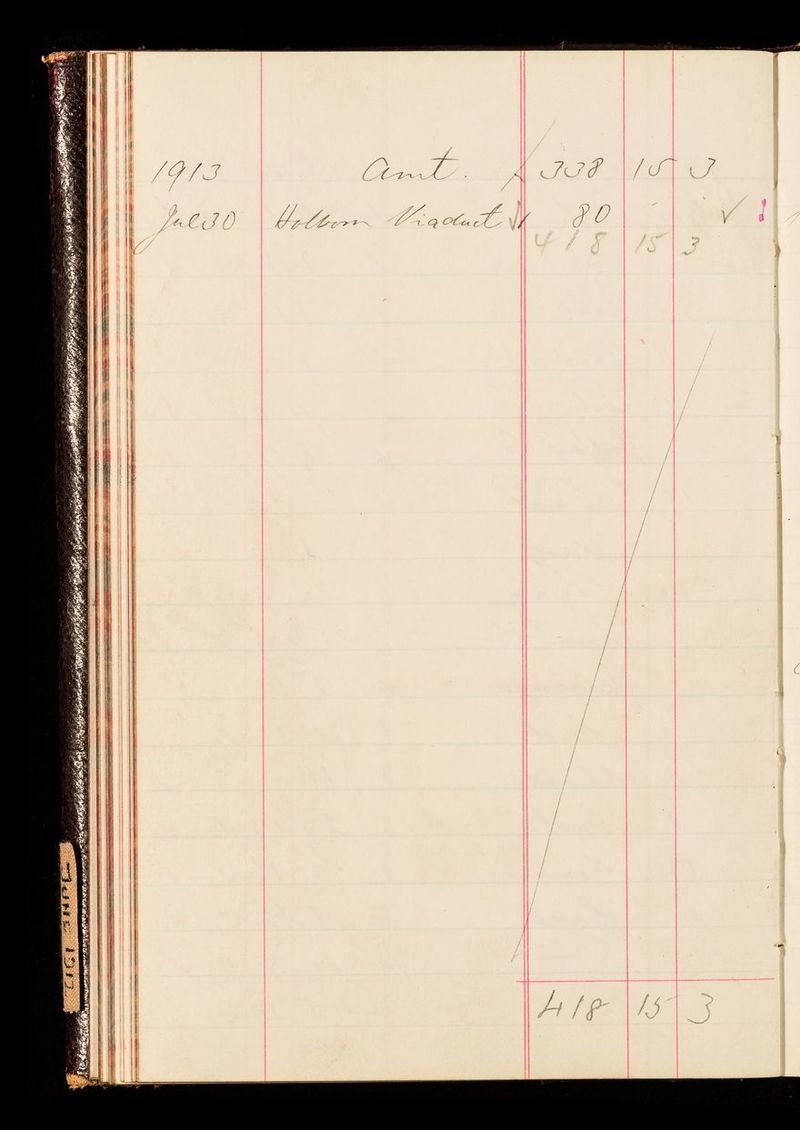 1913 Amt. 338 15 3
Jul 30 Holborn Viaduct 1 80 - - ✓
418 15 3
418 15 3